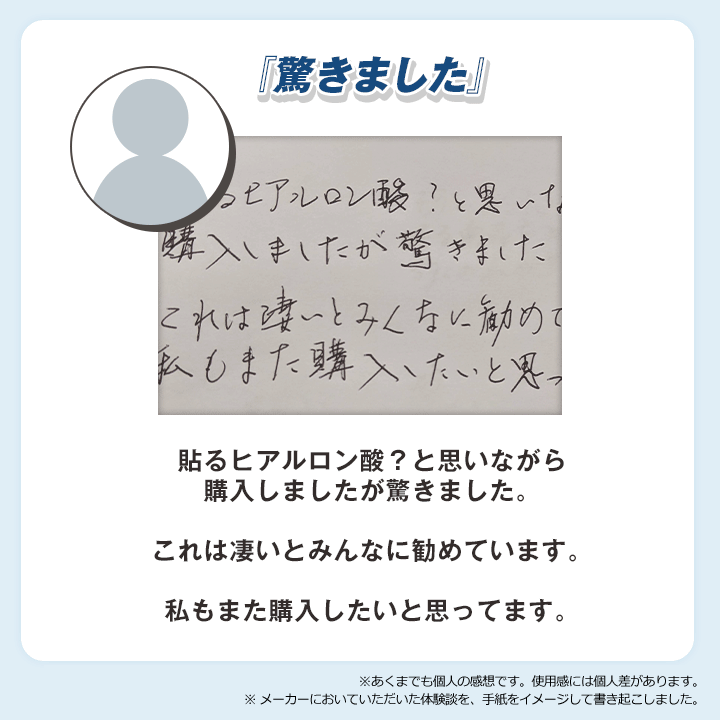 『驚きました』
るヒアルロン酸？と思いな
購入しましたが驚きました
これは凄いとみんなに勧めて
私もまた購入したいと思っ
貼るヒアルロン酸？と思いながら
購入しましたが驚きました。
これは凄いとみんなに勧めています。
私もまた購入したいと思ってます。
※あくまでも個人の感想です。使用感には個人差があります。
※ メーカーにおいていただいた体験談を、手紙をイメージして書き起こしました。